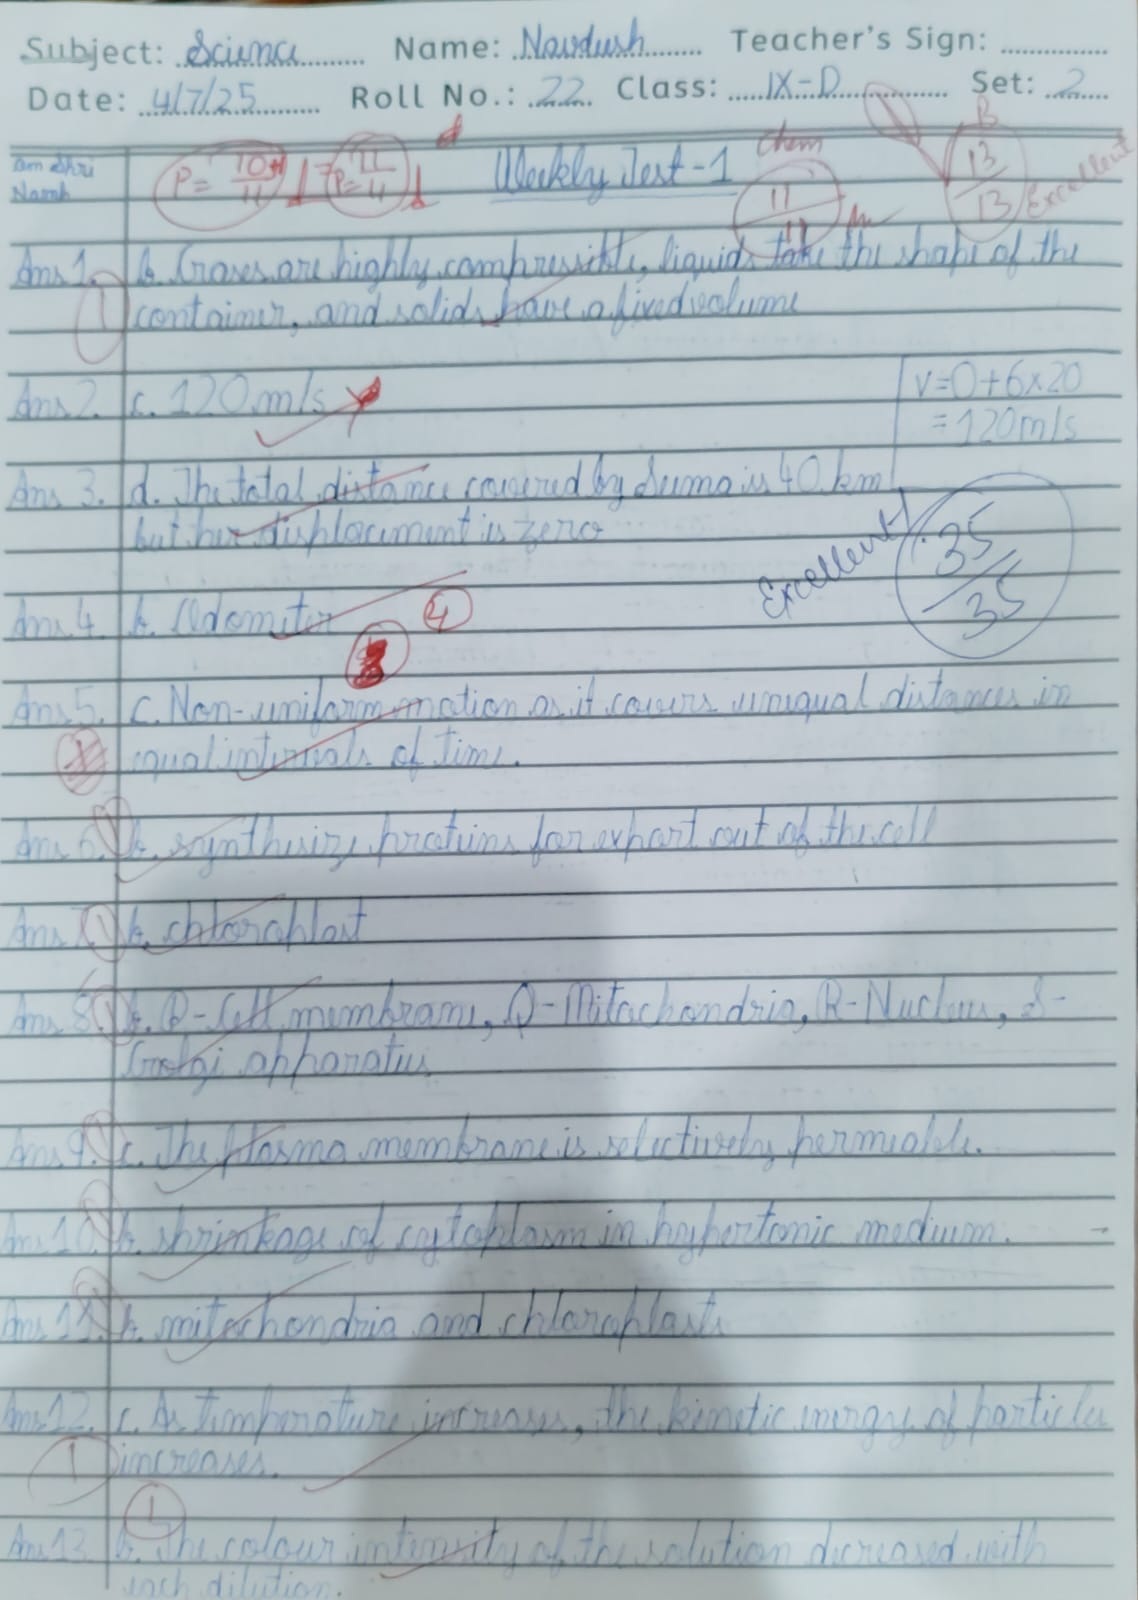 Subject: Science Name: Navdush Teacher's Sign:
Date: 4/7/25 Roll No.: 22 Class: IX-D Set: 2
Om Shri
P= 10/11 P= 11/11 Weekly Test-1 Chem 11/11 B 13/13 Excellent
Ans 1. b. Gases are highly compressible, liquids take the shape of the
1 container, and solids have a fixed volume
Ans 2. c. 120 m/s V=0+6x20
=120m/s
Ans 3. d. The total distance covered by Suma is 40 km
but her displacement is zero
Excellent! 35/35
Ans 4. b. Odometer 4
Ans 5. c. Non-uniform motion as it covers unequal distances in
equal intervals of time.
Ans 6. b. synthesize proteins for export out of the cell
Ans 7. b. chloroplast
Ans 8. b. P-Cell membrane, Q-Mitochondria, R-Nucleus, S-
Golgi apparatus
Ans 9. c. The plasma membrane is selectively permeable.
Ans 10. b. shrinkage of cytoplasm in hypertonic medium.
Ans 11. b. mitochondria and chloroplasts
Ans 12. c. As temperature increases, the kinetic energy of particles
1 increases.
1
Ans 13. b. The colour intensity of the solution decreased with
each dilution.